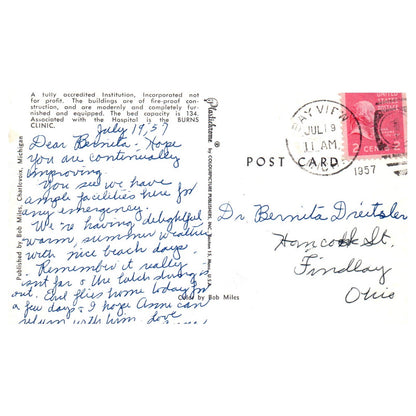 A fully accredited Institution, Incorporated not
for profit. The buildings are of fire-proof con-
struction, and are modernly and completely fur-
nished and equipped. The bed capacity is 134.
Associated with the Hospital is the BURNS
CLINIC.
July 19, 57
Dear Bernita - Hope
you are continually
improving.
You see we have
ample facilities here for
any emergency.
We're having delightful
warm, summer weather
with nice beach days.
Remember it really
isn't far & the latch string is
out. Earl flies home today for
a few days & I hope Anne can
return with him. Love
Published by Bob Miles, Charlevoix, Michigan
Plastichrome ®
by COLOURPICTURE PUBLISHERS, INC., Boston 15, Mass., U.S.A.
Color by Bob Miles
POST CARD
BAY VIEW
JUL 19
11 AM
MICH.
1957
2 CENTS 2
Dr. Bernita Dreitzler
Hancock St.
Findlay
Ohio